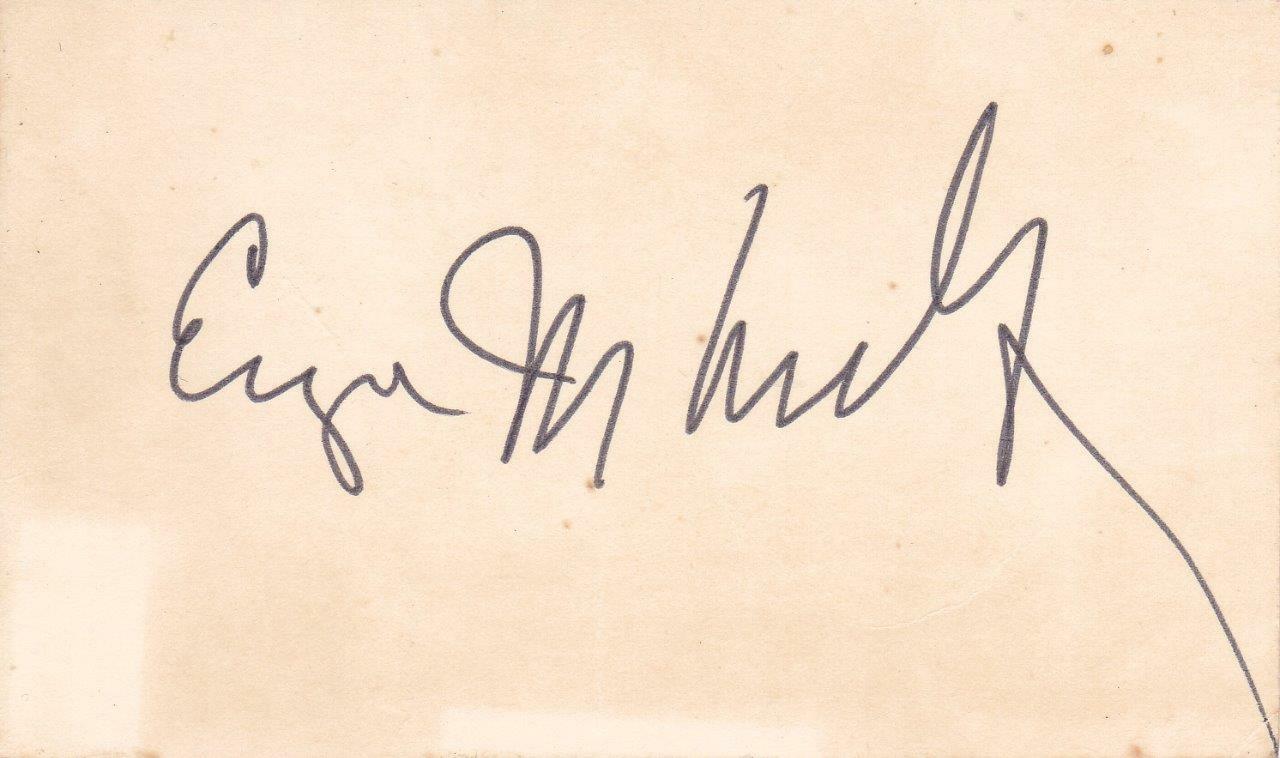 Eugene J McCarthy